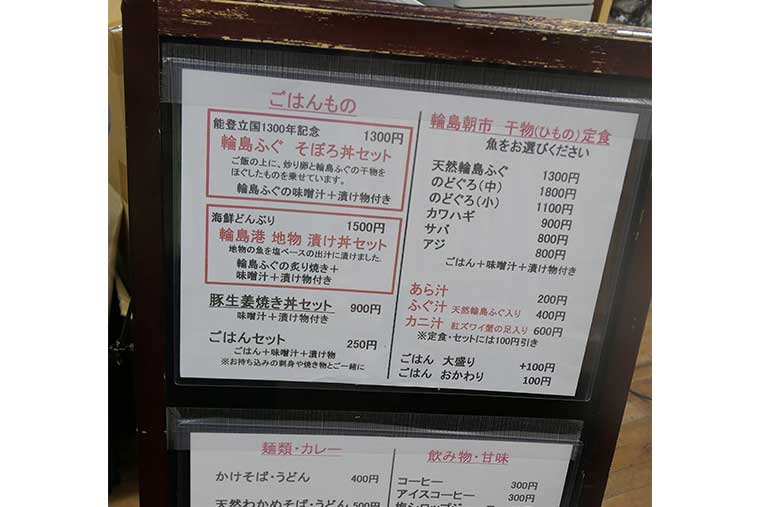 ごはんもの
能登立国1300年記念 1300円
輪島ふぐ そぼろ丼セット
ご飯の上に、炒り卵と輪島ふぐの干物を
ほぐしたものを乗せています。
輪島ふぐの味噌汁＋漬け物付き
海鮮どんぶり 1500円
輪島港 地物 漬け丼セット
地物の魚を塩ベースの出汁に漬けました。
輪島ふぐの炙り焼き＋
味噌汁＋漬け物付き
豚生姜焼き丼セット 900円
味噌汁＋漬け物付き
ごはんセット 250円
ごはん＋味噌汁＋漬け物
※お持ち込みの刺身や焼き物とご一緒に
輪島朝市 干物(ひもの)定食
魚をお選びください
天然輪島ふぐ 1300円
のどぐろ(中) 1800円
のどぐろ(小) 1100円
カワハギ 900円
サバ 800円
アジ 800円
ごはん＋味噌汁＋漬け物付き
あら汁 200円
ふぐ汁 天然輪島ふぐ入り 400円
カニ汁 紅ズワイ蟹の足入り 600円
※定食・セットには100円引き
ごはん 大盛り +100円
ごはん おかわり 100円
麺類・カレー
かけそば・うどん 400円
天然わかめそば・うどん 500円
飲み物・甘味
コーヒー 300円
アイスコーヒー 300円